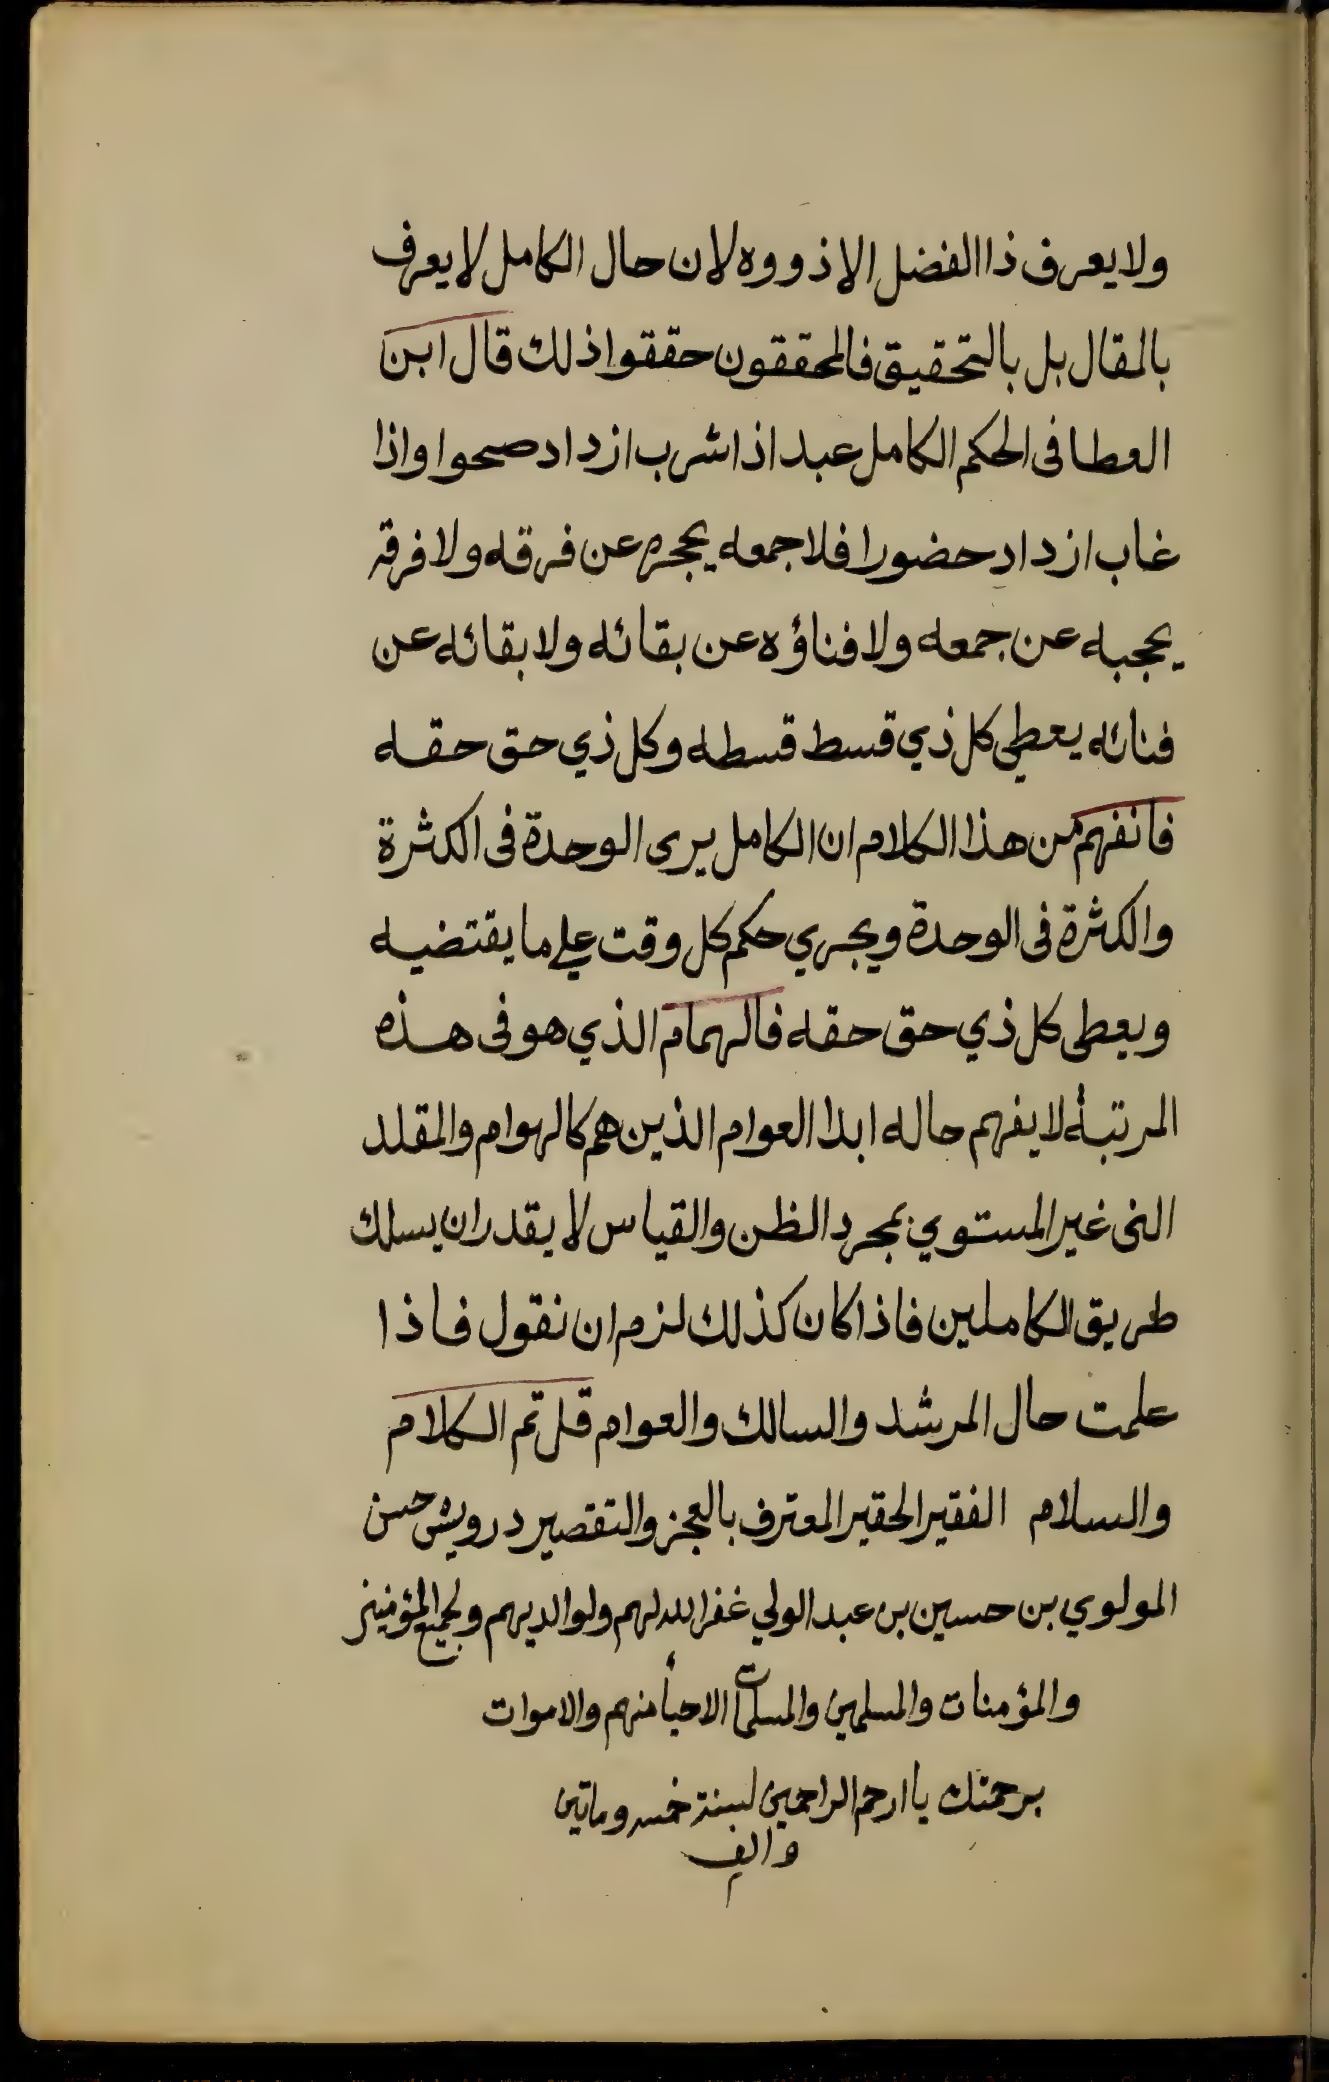 ولا يعرف ذا الفضل الا ذووه لان حال الكامل لا يعرف
بالمقال بل بالتحقيق فالمحققون حققوا ذلك قال ابن
العطا فى الحكم الكامل عبد اذا شرب ازداد صحوا واذا
غاب ازداد حضورا فلا جمعه يحجبه عن فرقه ولا فرقه
يحجبه عن جمعه ولا فناؤه عن بقائه ولا بقائه عن
فنائه يعطي كل ذي قسط قسطه وكل ذي حق حقه
فانفهم من هذا الكلام ان الكامل يرى الوحدة فى الكثرة
والكثرة فى الوحدة ويجري حكم كل وقت علي ما يقتضيه
ويعطى كل ذي حق حقه فالهمام الذي هو فى هذه
المرتبة لا يفهم حاله ابدا العوام الذين هم كالهوام والمقلد
النى غير المستوي بمجرد الظن والقياس لا يقدر ان يسلك
طريق الكاملين فاذا كان كذلك لزم ان نقول فاذا
علمت حال المرشد والسالك والعوام قل تم الكلام
والسلام الفقير الحقير المعترف بالعجز والتقصير درويش حسن
المولوي بن حسين بن عبد الولي غفر الله لهم ولوالديهم ولجميع المؤمنين
والمؤمنات والمسلمين والمسلمات الاحيأ منهم والاموات
برحمتك يا ارحم الراحمين لسنة خمس ومأتين
والف